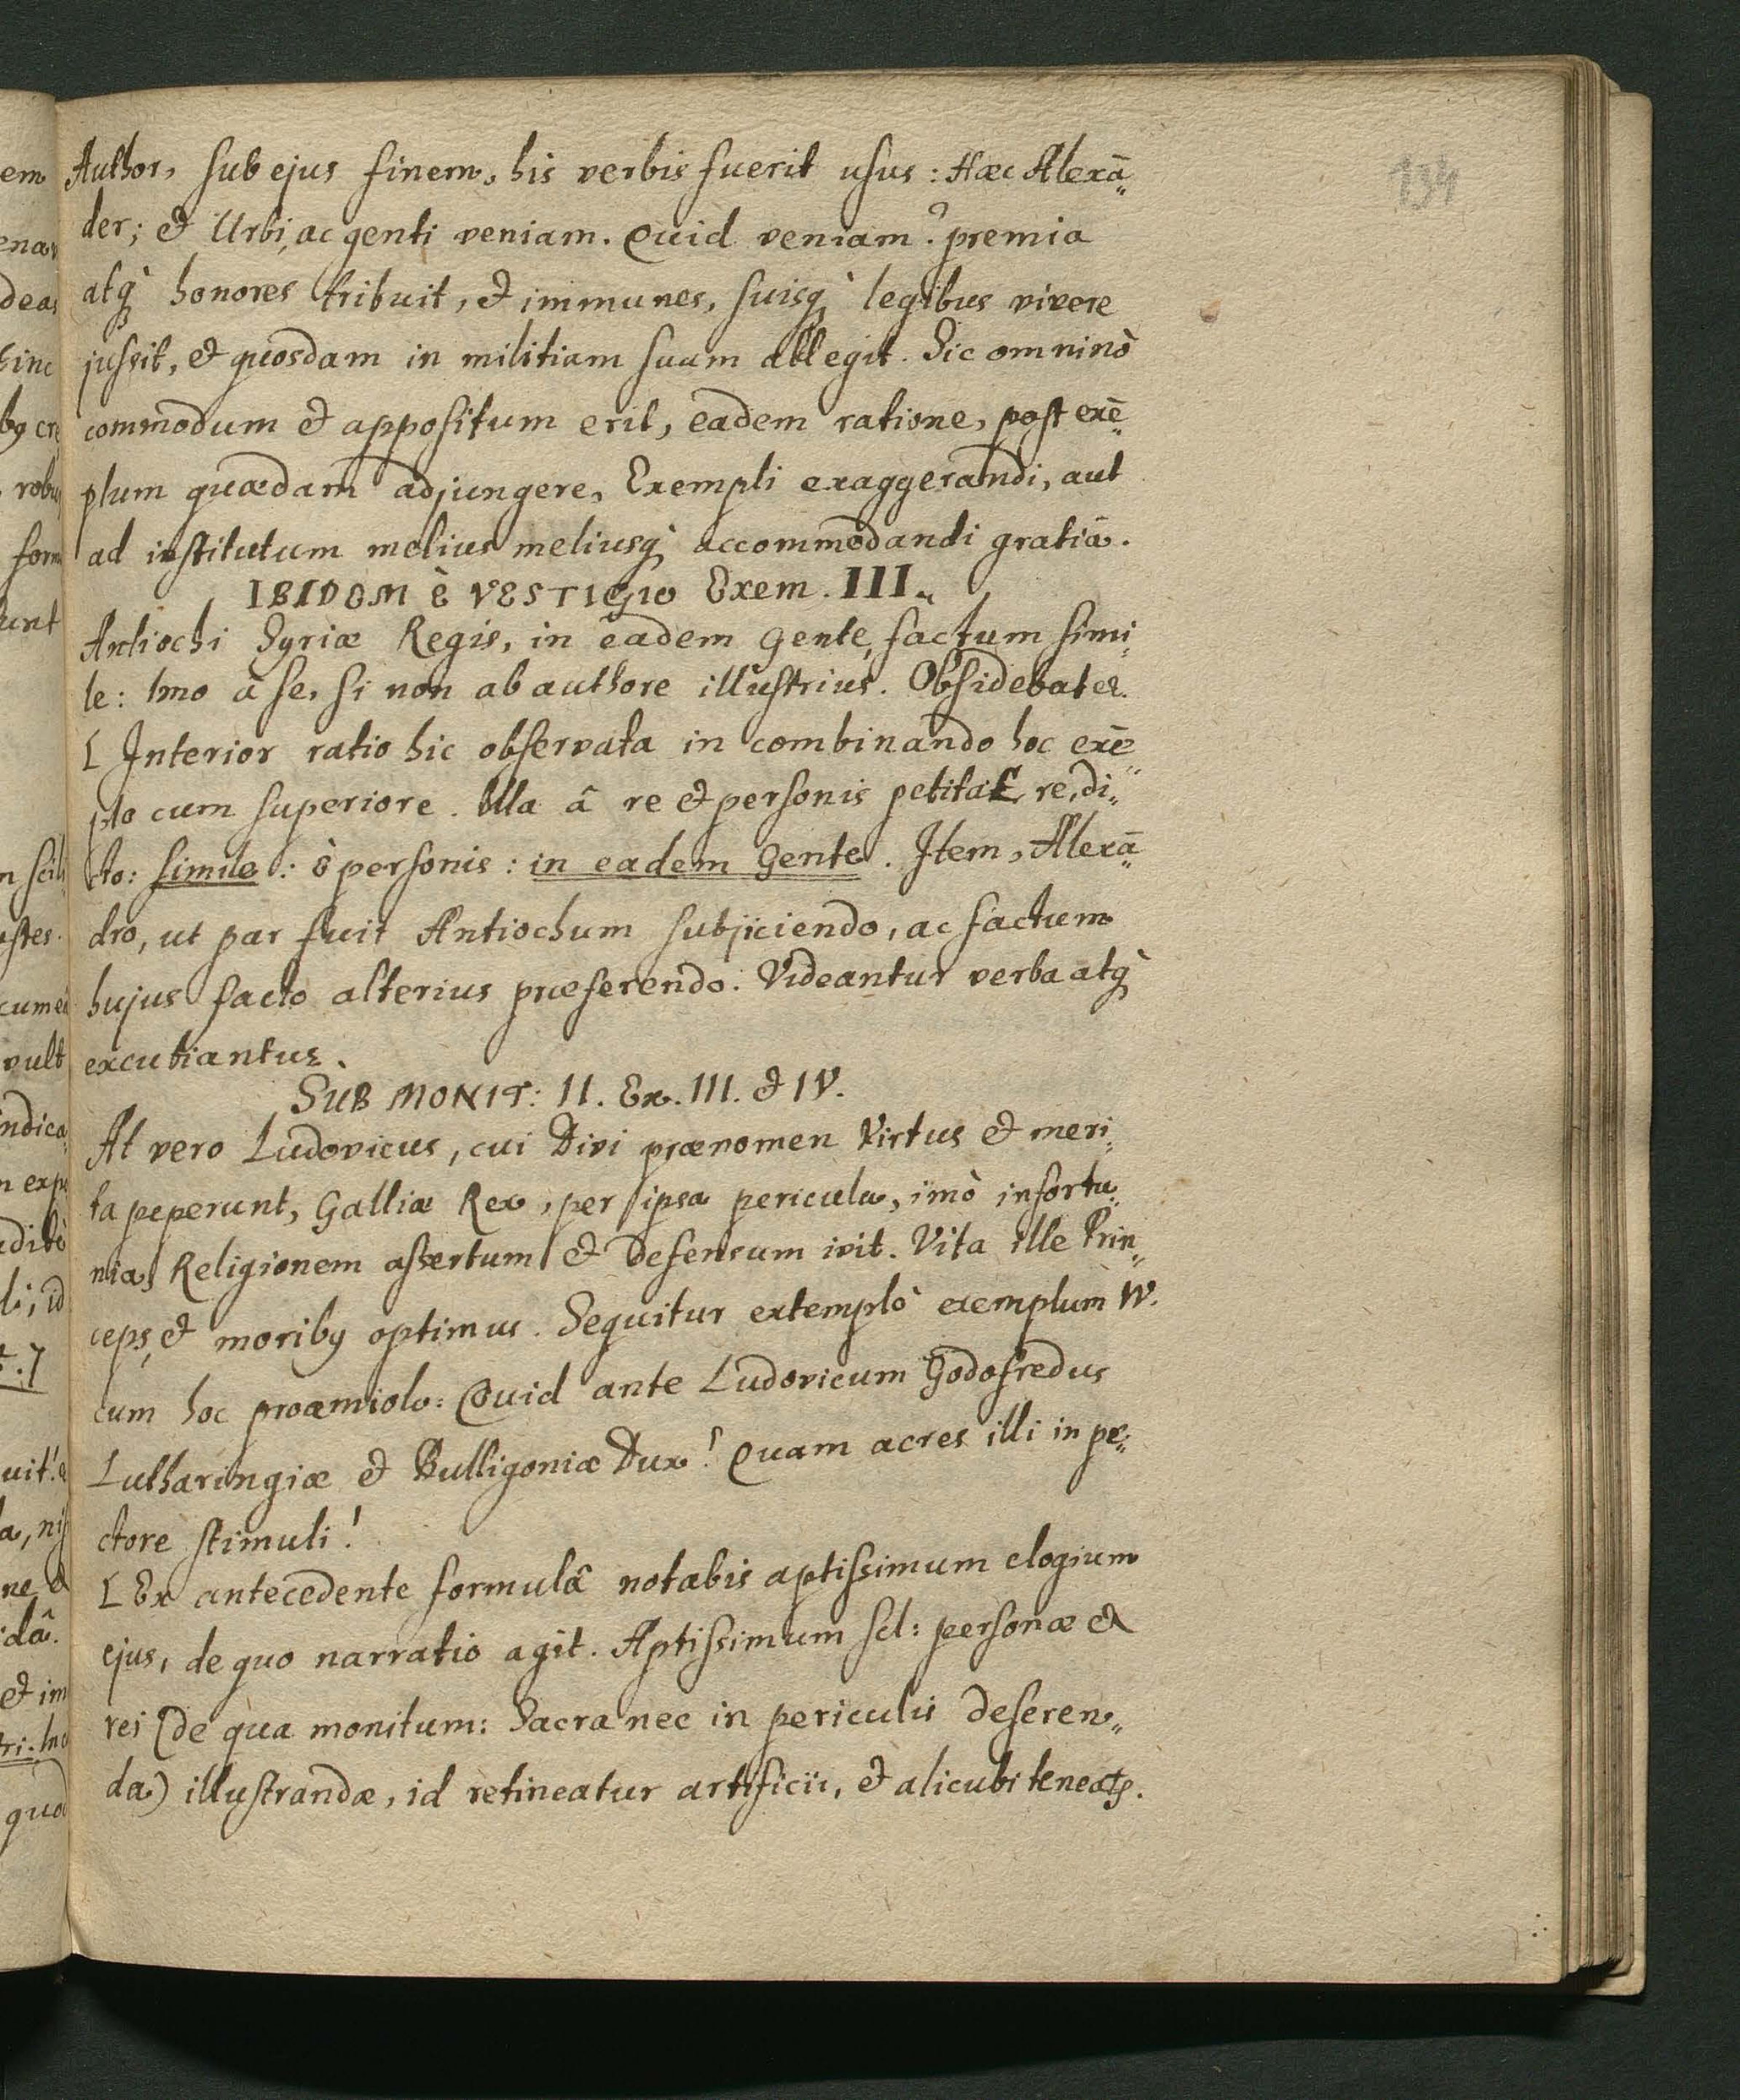 134
Author, sub ejus finem, his verbis fuerit usus: Hæc Alexā„
der; et Urbi, ac genti veniam. Quid veniam? premia
atq̀ honores tribuit, et immunes, suisq̀ legibus vivere
jussit, et quosdam in militiam suam allegit. Sic omninò
commodum et appositum erit, eadem ratione, post exē„
plum quædam adjungere, Exempli exaggerandi, aut
ad institutum melius meliusq̀ accommodandi gratiā.
IBIDEM È VESTIGIO Exem. III.
Antiochi Syriæ Regis, in eadem Gente, factum simi„
le: Imo à se, si non ab authore illustrius. Obsidebat et.
[ Interior ratio hic observata in combinando hoc exē„
plo cum superiore. Illa â re et personis petita E re, di„
cto: simile: è personis: in eadem Gente. Item, Alexā„
dro, ut par fuit Antiochum subjiciendo, ac factum
hujus facto alterius præferendo. Videantur verba atq̀
excutiantur.
SUB MONIT: II. Ex. III. et IV.
At vero Ludovicus, cui Divi prænomen Virtus et meri„
ta peperunt, Galliæ Rex, per ipsa pericula, imò infortu„
nia, Religionem assertum et defensum ivit. Vita ille Prin„
ceps, et moribꝰ optimus. Sequitur extemplò exemplum IV.
cum hoc proæmiolo: Quid ante Ludovicum Godofredus
Lutharingiæ et Bulligoniæ Dux! Quam acres illi in pe„
ctore stimuli!
[ Ex antecedente formulâ notabis aptissimum elogium
ejus, de quo narratio agit. Aptissimum scl: personæ et
rei (de qua monitum: Sacra nec in periculis deseren„
da) illustrandæ, id retineatur artificii, et alicubi teneatꝰ.